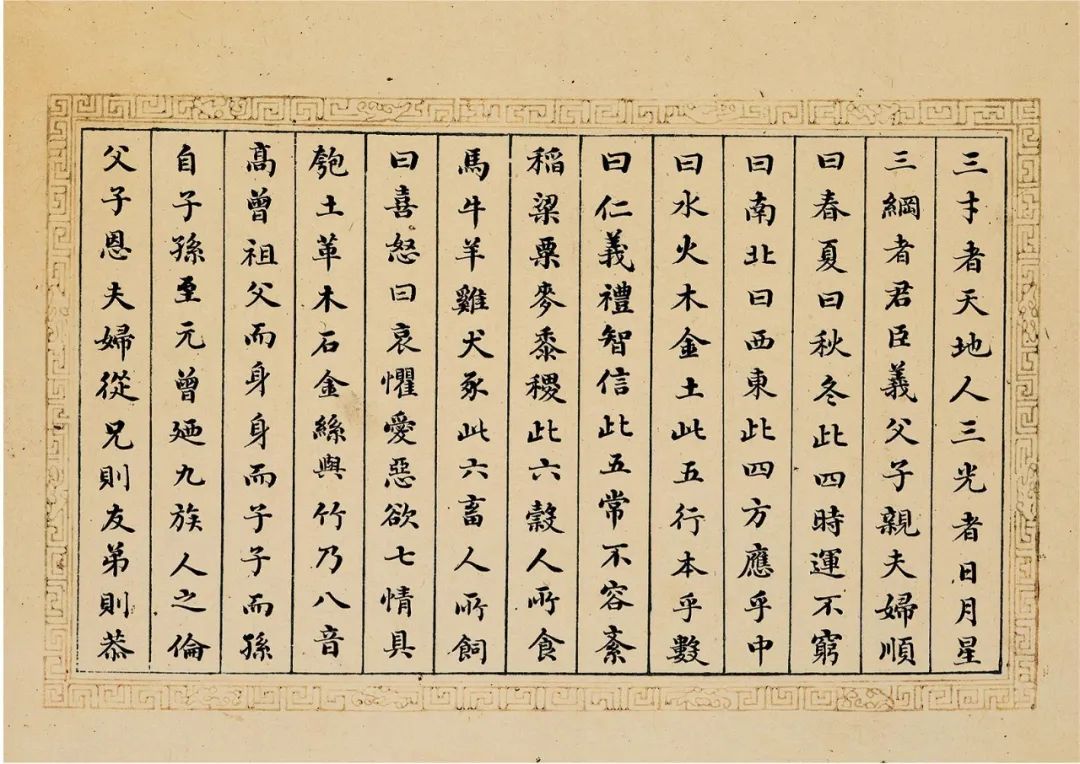 三才者天地人三光者日月星
三綱者君臣義父子親夫婦順
曰春夏曰秋冬此四時運不窮
曰南北曰西東此四方應乎中
曰水火木金土此五行本乎數
曰仁義禮智信此五常不容紊
稻粱粟麥黍稷此六穀人所食
馬牛羊雞犬豕此六畜人所飼
曰喜怒曰哀懼愛惡欲七情具
匏土革木石金絲與竹乃八音
高曾祖父而身身而子子而孫
自子孫至元曾廼九族人之倫
父子恩夫婦從兄則友弟則恭